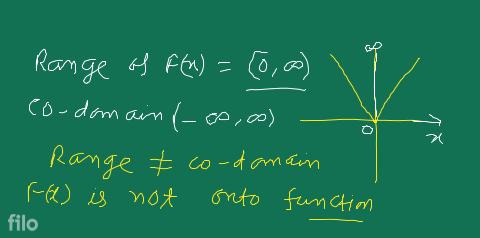 Range of f(x) = [0, ∞)
co-domain (-∞, ∞)
Range ≠ co-domain
F(x) is not onto function
∞
0
x
filo